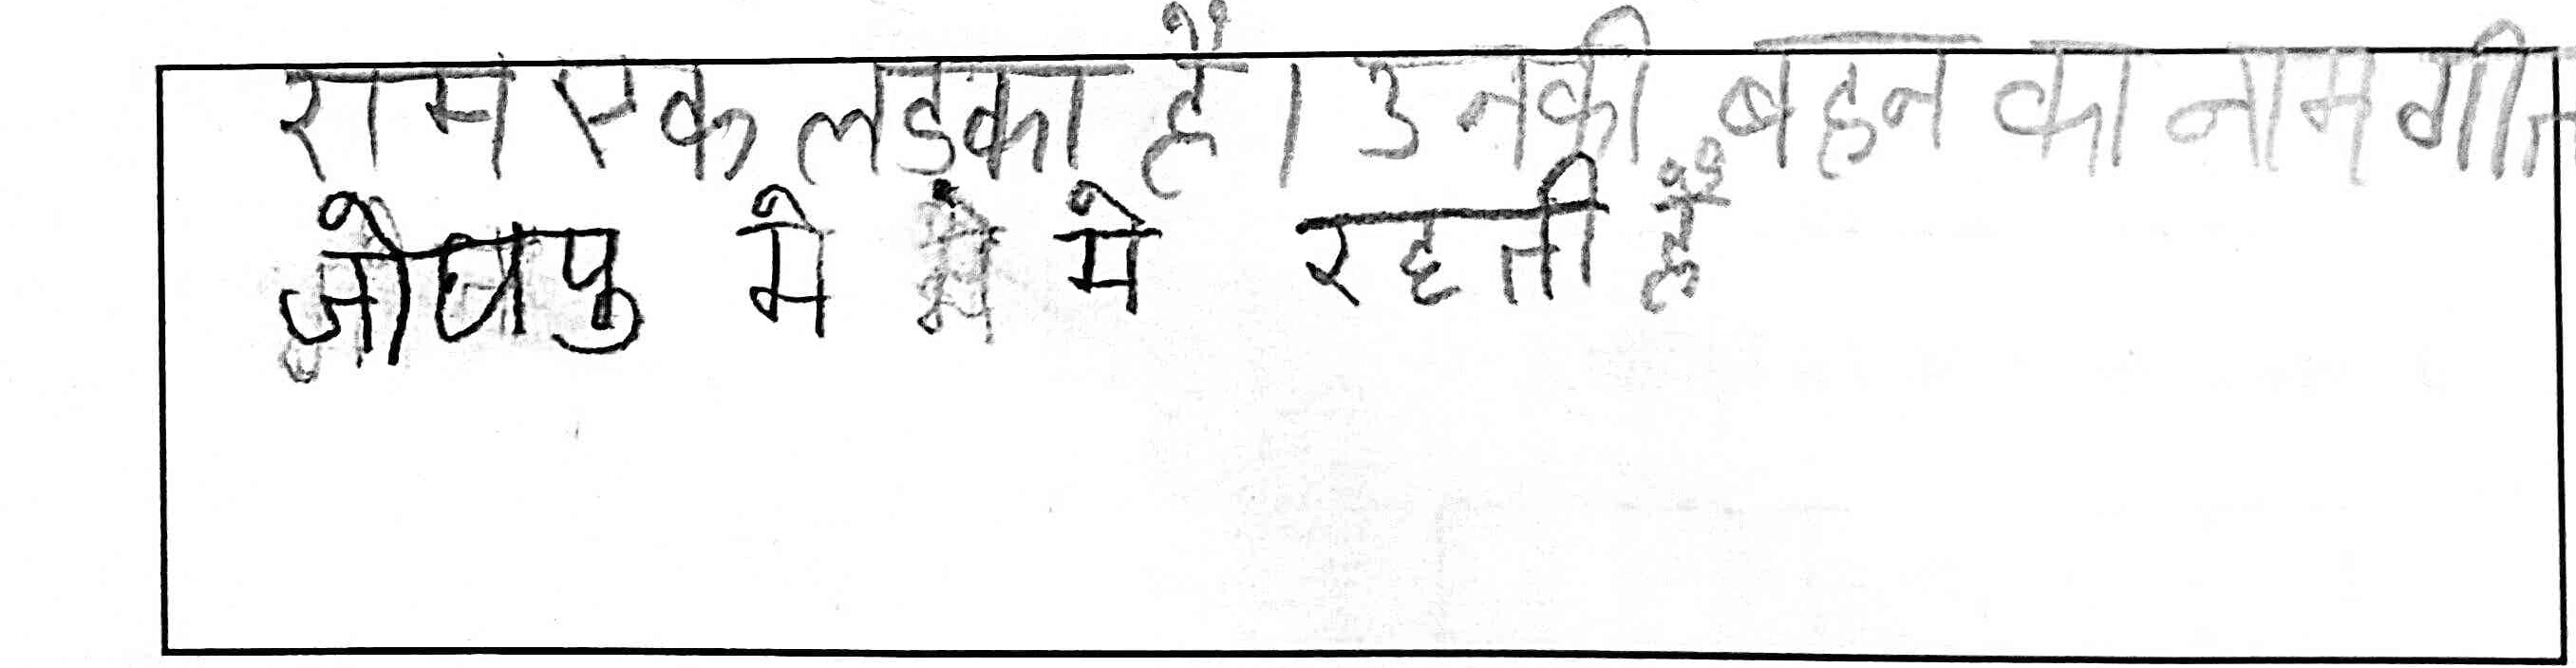 राम एक लड़का है। उनकी बहन का नाम गीत
जोधपु मे मे रहती हैं